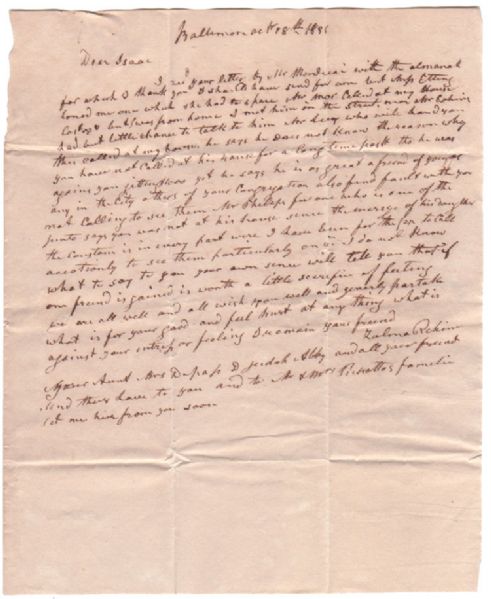 Baltimore Oct 28th 1831
Dear Isaac
I red your letter by Mr Mordecai with the almanak
for which I thank you I shall have send for one but Miss Etting
loned me one which she had to spare Mr Calld at my House
but I was from home I met him on the Street near Mr Cohens
had but little chance to talk to him Mr Levy who will hand you
this called at my house he says he does not know the reason why
you have not Calld at his house for a long time past tho he was
against you getting yet he says he is as great a friend of yours as
any in the City others of your Congregation also find fault with you
not Calling to see them Mr Philips for one who is one of the
says you was not at his house sence the of his daughter
the Constom is in every part were I have been for the to Call
to see them particularly on I do not know
what to say to you your own sence will tell you that if
one freind is gained is worth a little sacrifice of feeling
we are all well and all wish you well and partake
what is for your good and feel hurt at any thing what is
against your intrest or feeling I remain your freind
Zalma Rehine
Your Aunt Mrs D Judah Abby and all your freind
send there love to you and to Mr & Mrs familie
let me hear from you soon